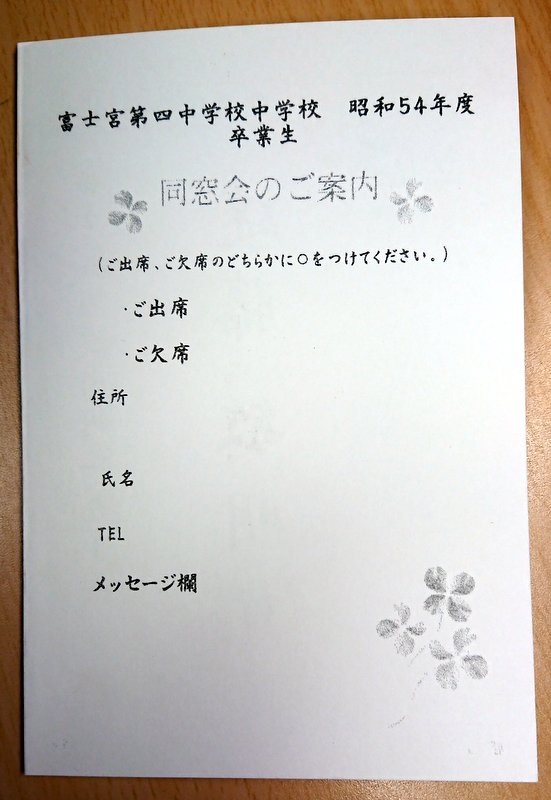 富士宮第四中学校中学校 昭和54年度
卒業生
同窓会のご案内
(ご出席、ご欠席のどちらかに〇をつけてください。)
・ご出席
・ご欠席
住所
氏名
TEL
メッセージ欄